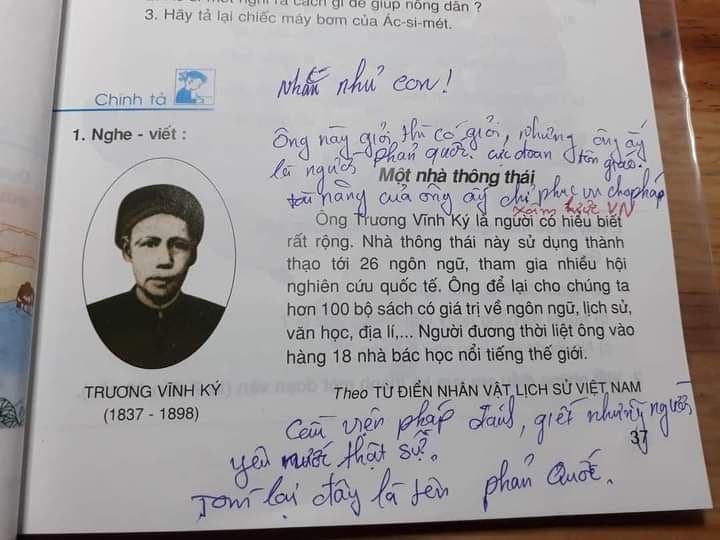 2. Ác-si-mét nghĩ ra cách gì để giúp nông dân ?
3. Hãy tả lại chiếc máy bơm của Ác-si-mét.
Chính tả
Nhắn như con!
1. Nghe - viết :
Ông này giỏi thì có giỏi, nhưng ông ấy
là người phản quốc. cực đoan tôn giáo.
Một nhà thông thái
tài năng của ông ấy chỉ phục vụ cho pháp
xâm lược VN
Ông Trương Vĩnh Ký là người có hiểu biết
rất rộng. Nhà thông thái này sử dụng thành
thạo tới 26 ngôn ngữ, tham gia nhiều hội
nghiên cứu quốc tế. Ông để lại cho chúng ta
hơn 100 bộ sách có giá trị về ngôn ngữ, lịch sử,
văn học, địa lí,... Người đương thời liệt ông vào
hàng 18 nhà bác học nổi tiếng thế giới.
TRƯƠNG VĨNH KÝ
(1837 - 1898)
Theo TỪ ĐIỂN NHÂN VẬT LỊCH SỬ VIỆT NAM
viện pháp đánh, giết những người
yêu nước thật sự.
37
Tóm lại đây là tên phản Quốc.